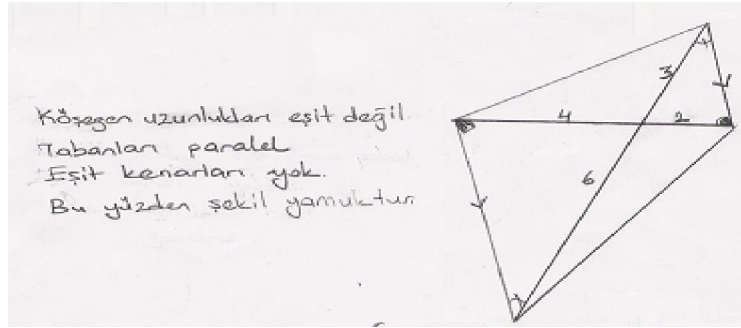 Köşegen uzunlukları eşit değil.
Tabanları paralel
Eşit kenarları yok.
Bu yüzden şekil yamuktur.
3
4
2
6